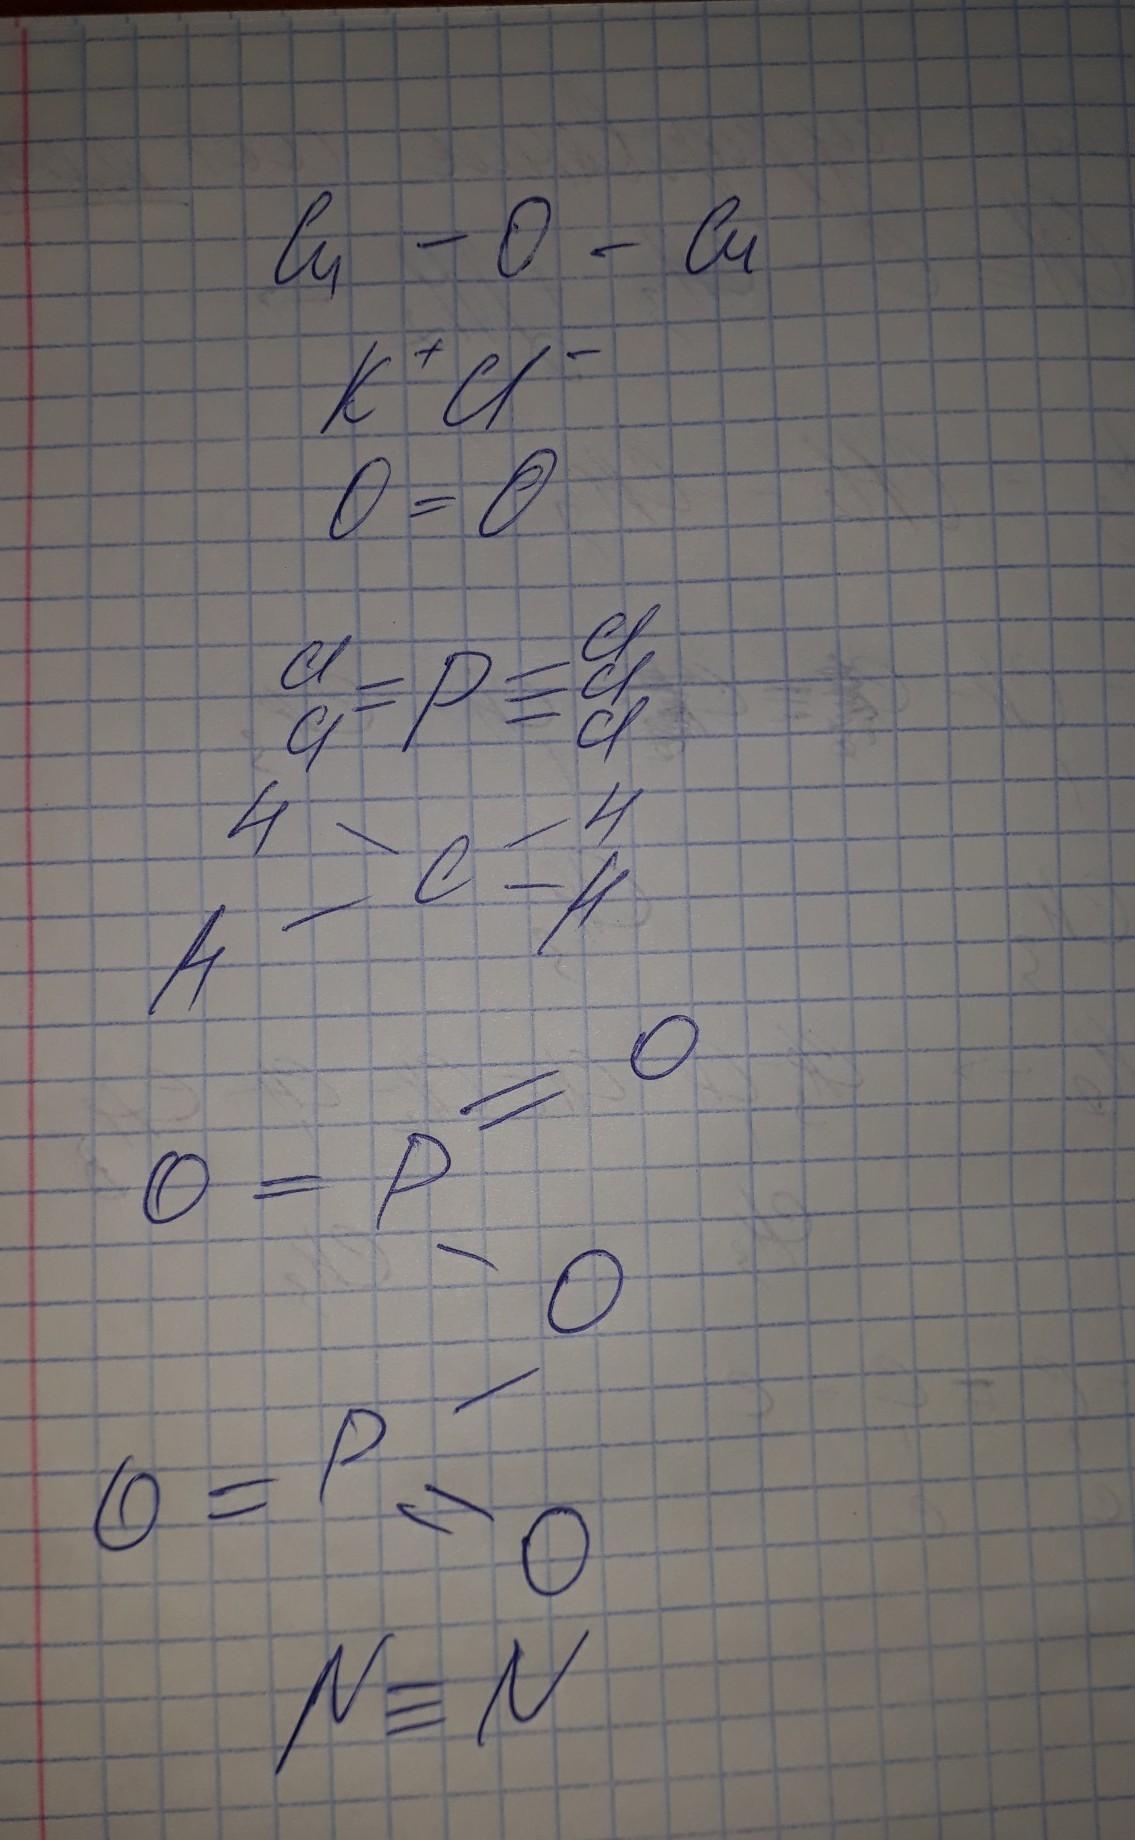 Cu - O - Cu
K⁺Cl⁻
O = O
Cl Cl
Cl = P ≡ Cl
Cl
H \ / H
C - H
H /
O
//
O = P
\
O
/
O = P
\\
O
N ≡ N